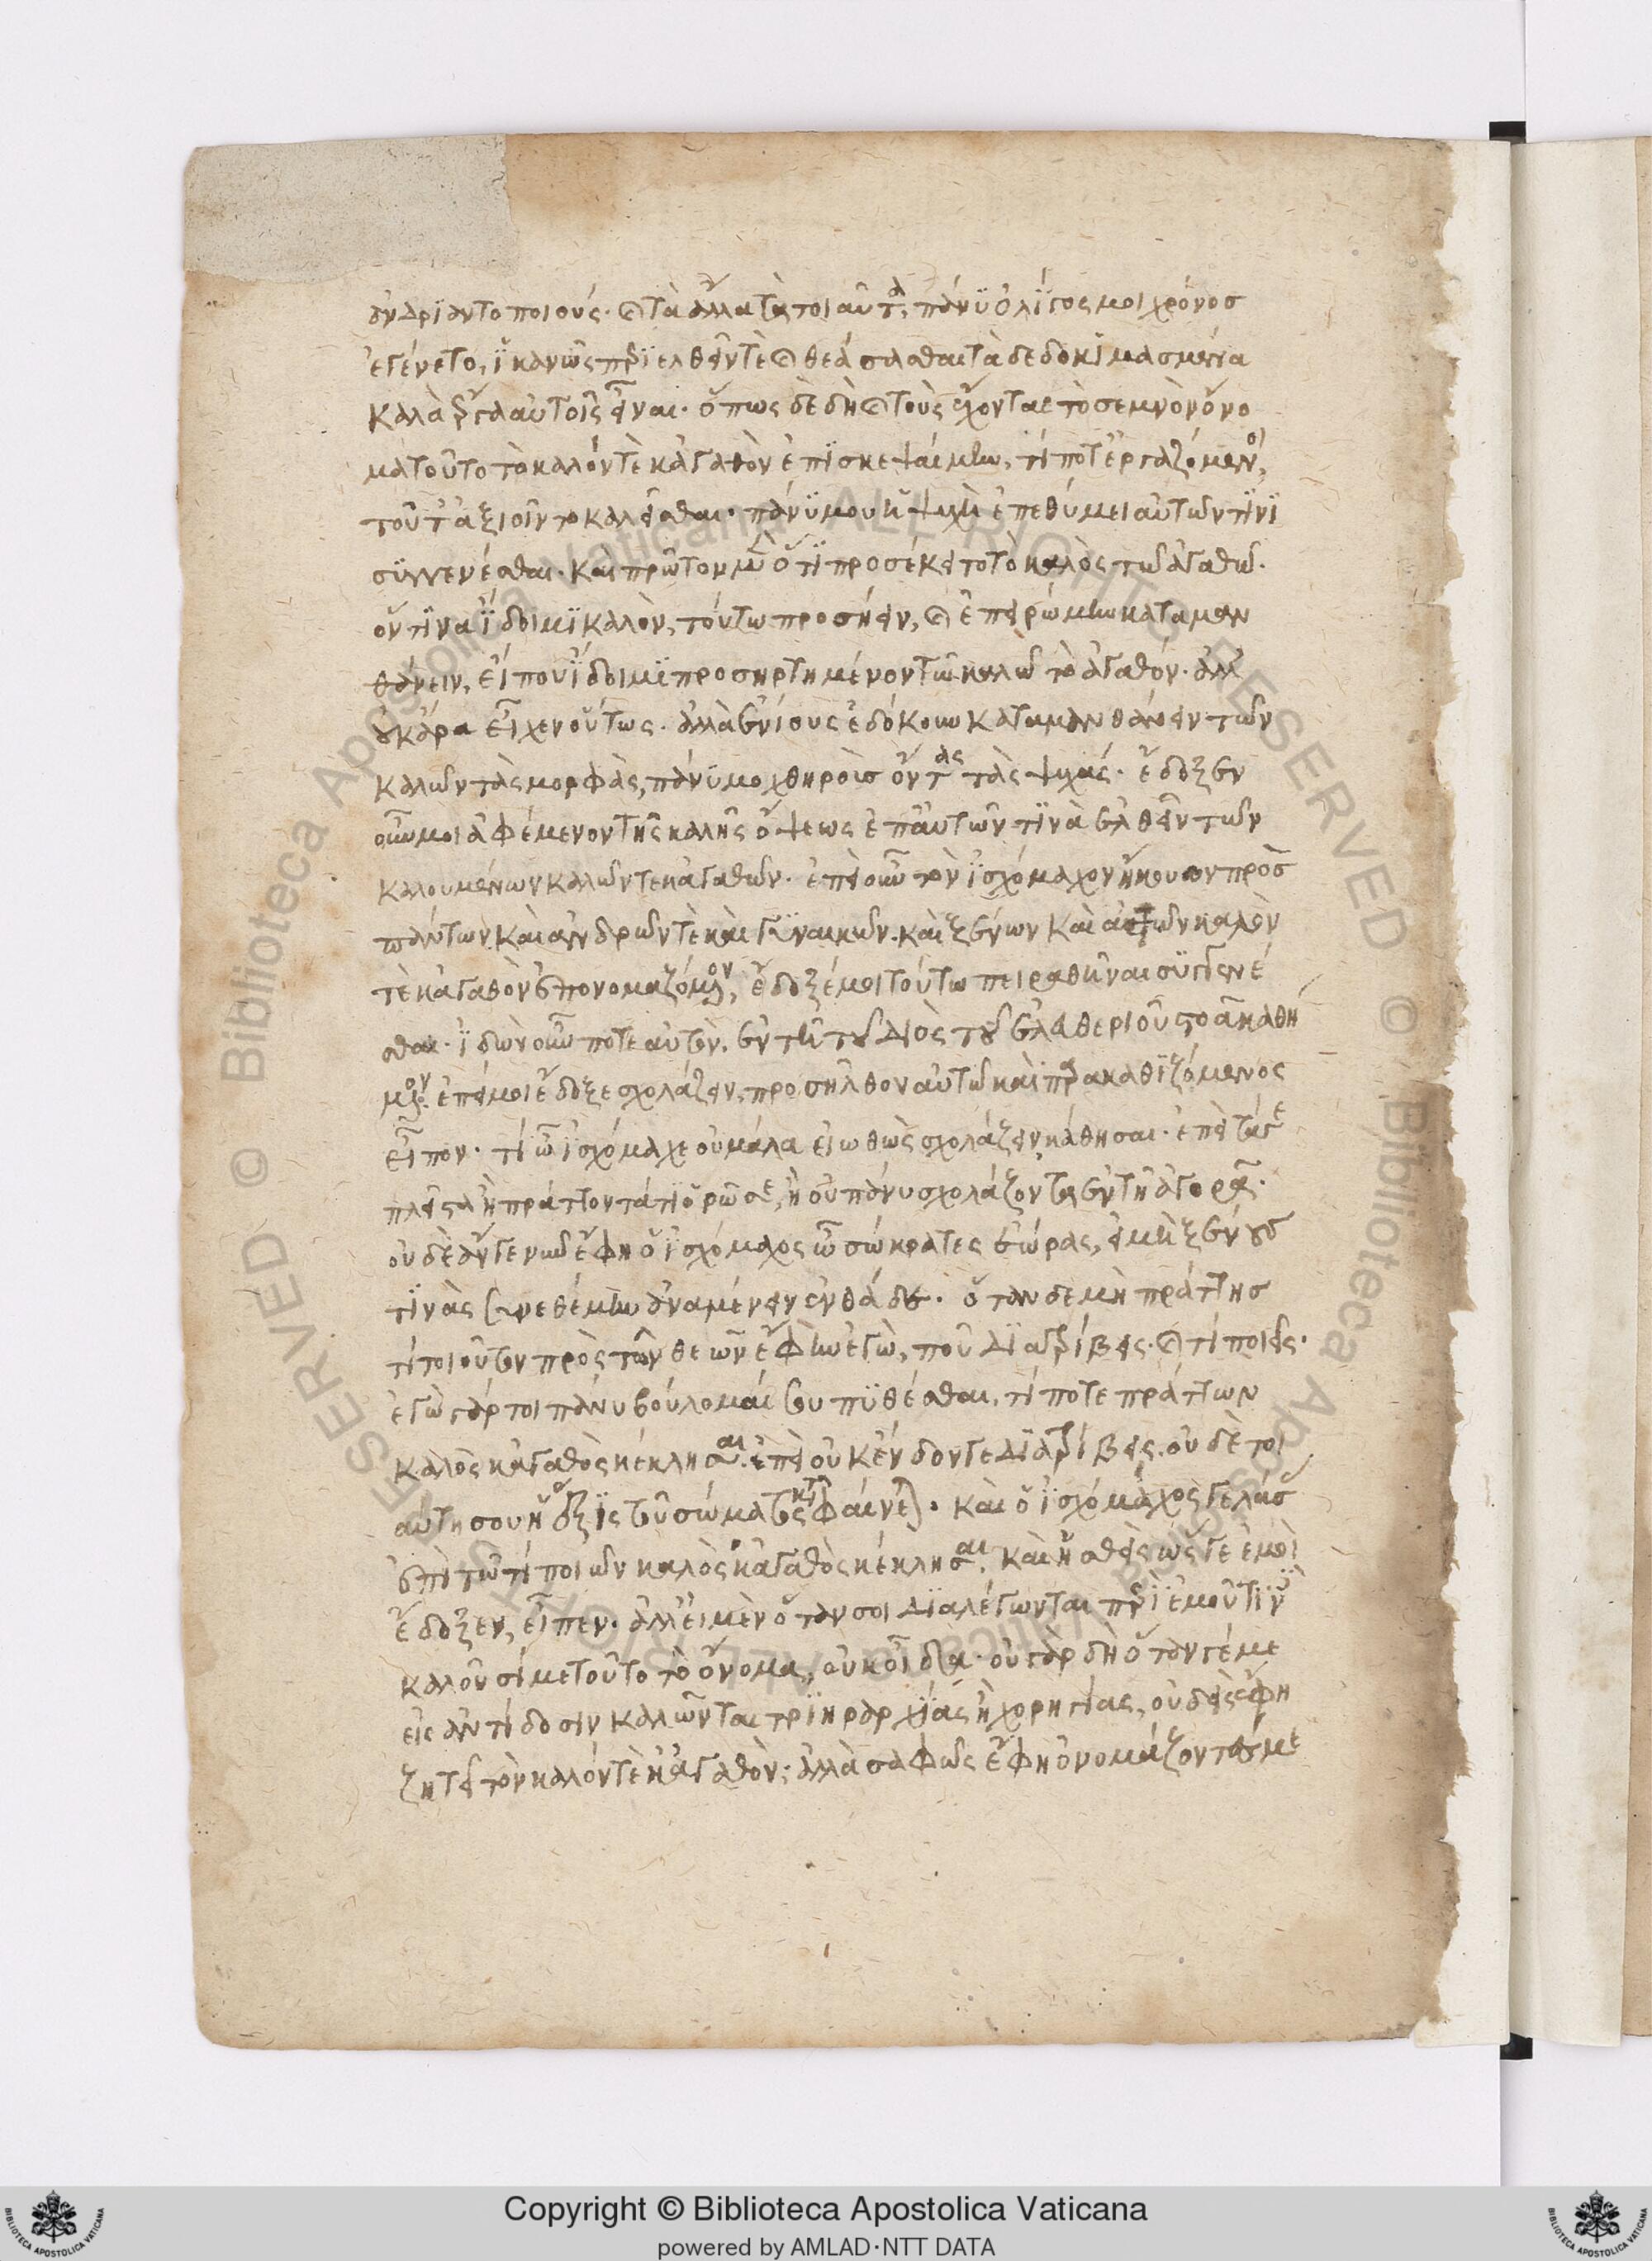 ἀνδριαντοποιούς. καὶ τὰ ἄλλα τὰ τοιαῦτα, πάνυ ὀλίγος μοι χρόνος
ἐγένετο, ἱκανῶς περιελθεῖν τὲ καὶ θεάσασθαι τὰ δεδοκιμασμένα
καλὰ ἔργα αὐτοῖς εἶναι. ὅπως δὲ δὴ καὶ τοὺς ἔχοντας τὸ σεμνὸν ὄνο
μα τοῦτο τὸ καλόν τὲ κἀγαθὸν ἐπισκεψαίμην, τί ποτ' ἐργαζόμενοι,
τοῦτ' ἀξιοῖντο καλεῖσθαι. πάνυ μου ἡ ψυχὴ ἐπεθύμει αὐτῶν τινὶ
συγγενέσθαι. καὶ πρῶτον μὲν ὅτι προσέκειτο τὸ καλὸς τῶ ἀγαθῶ.
ὅντινα ἴδοιμι καλὸν, τούτω προσήειν, καὶ ἐπειρώμην καταμαν
θάνειν, εἴ που ἴδοιμι προσηρτημένον τῶ καλῶ τὸ ἀγαθόν. ἀλλ'
οὐκ ἄρα εἶχεν οὕτως. ἀλλὰ ἐνίους ἐδόκουν καταμανθάνειν τῶν
καλῶν τὰς μορφὰς, πάνυ μοχθηροὺς ὄντας τὰς ψυχάς. ἔδοξεν
οὖν μοι ἀφέμενον τῆς καλῆς ὄψεως ἐπ' αὐτῶν τινὰ ἐλθεῖν τῶν
καλουμένων καλῶν τε κἀγαθῶν. ἐπεὶ οὖν τὸν ἰσχόμαχον ἤκουον πρὸς
πάντων καὶ ἀνδρῶν τὲ καὶ γυναικῶν. καὶ ξένων καὶ ἀστῶν καλὸν
τὲ κἀγαθὸν ἐπονομαζόμενον, ἔδοξέ μοι τούτω πειραθῆναι συγγενέ
σθαι. ἰδὼν οὖν ποτε αὐτὸν, ἐν τῆ τοῦ Διὸς τοῦ ἐλευθερίου στοᾶ καθή
μενον. ἐπεί μοι ἔδοξε σχολάζειν, προσῆλθον αὐτῶ καὶ παρακαθιζόμενος
εἶπον. τί ὦ ἰσχόμαχε οὐ μάλα εἰωθὼς σχολάζειν κάθησαι. ἐπεὶ τάγε
πλεῖστα ἢ πράττοντά τι ὁρῶ σε, ἢ οὐ πάνυ σχολάζοντα ἐν τῆ ἀγορᾶ.
οὐδὲ ἄν γε νῦν ἔφη ὁ ἰσχόμαχος ὦ σώκρατες ἑώρας, εἰ μὴ ξένους
τινὰς συνεθέμην ἀναμένειν ἐνθάδε. ὅταν δὲ μὴ πράττης
τί τοιοῦτον πρὸς τῶν θεῶν ἔφην ἐγὼ, ποῦ διατρίβεις. καὶ τί ποιεῖς.
ἐγὼ γάρ τοι πάνυ βούλομαί σου πυθέσθαι, τί ποτε πράττων
καλὸς κἀγαθὸς κέκλησαι. ἐπεὶ οὐκ ἔνδον γε διατρίβεις. οὐδὲ τοι
αύτη σου ἡ ἕξις τοῦ σώματος καταφαίνεται. καὶ ὁ ἰσχόμαχος γελάσας
ἐπὶ τῶ τί ποιῶν καλὸς κἀγαθὸς κέκλησαι, καὶ ἡσθεὶς ὥς γε ἐμοὶ
ἔδοξεν, εἶπεν. ἀλλ' εἰ μὲν ὅταν σοι διαλέγωνται περὶ ἐμοῦ τινὲς
καλοῦσί με τοῦτο τὸ ὄνομα, οὐκ οἶδα. οὐ γὰρ δὴ ὅταν γέ με
εἰς ἀντίδοσιν καλῶνται τριηραρχίας ἢ χορηγίας, οὐδεὶς ἔφη
ζητεῖ τὸν καλόν τὲ κἀγαθὸν; ἀλλὰ σαφῶς ἔφη ὀνομάζοντάς με
Copyright © Biblioteca Apostolica Vaticana
powered by AMLAD·NTT DATA